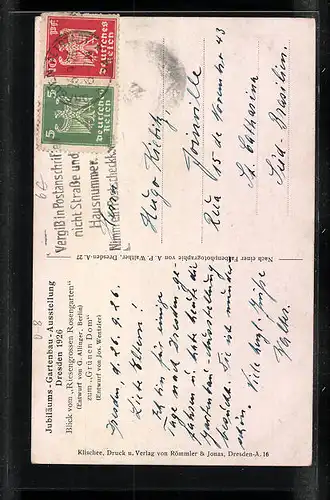 Jubiläums-Gartenbau-Ausstellung
Dresden 1926
Blick vom „Riesengrossen Rosengarten"
(Entwurf von G. Allinger, Berlin)
zum „Grünen Dom"
(Entwurf von Jos. Wentzler)
Dresden, d. 26. 9. 26.
Liebe Eltern!
Ich bin für einige
Tage nach Dresden ge-
fahren u. habe heute die
Gartenbau-Ausstellung
besucht. Sie ist wunder-
schön.
Viele herzl. Grüße
Walter.
Klischee, Druck u. Verlag von Römmler & Jonas, Dresden-A. 16
Nach einer Farbenphotographie von A. P. Walther, Dresden-A. 27
Deutsches
Reich
5 5
Deutsches
Reich
Vergiß in Postanschrift
nicht Straße und
Hausnummer
Nimm
Herrn
Hugo
Joinville
Rua 15 de Novembro 43
St. Catharina
Süd-Brasilien.